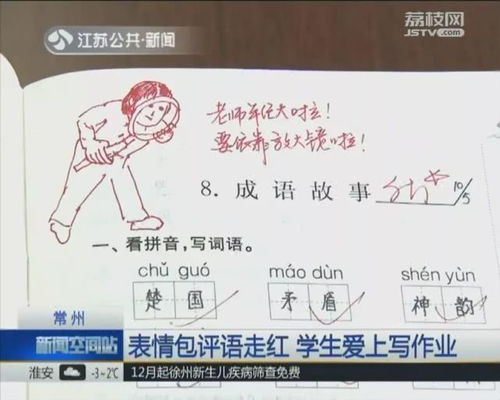 江苏公共·新闻
荔枝网
JSTV.com
老师年纪大啦!
要依靠放大镜啦!
8. 成语故事
10/5
一、看拼音,写词语。
chǔ guó
máo dùn
shén yùn
楚国
矛盾
神韵
常州
新闻空间站
表情包评语走红 学生爱上写作业
淮安
-3~2℃
12月起徐州新生儿疾病筛查免费